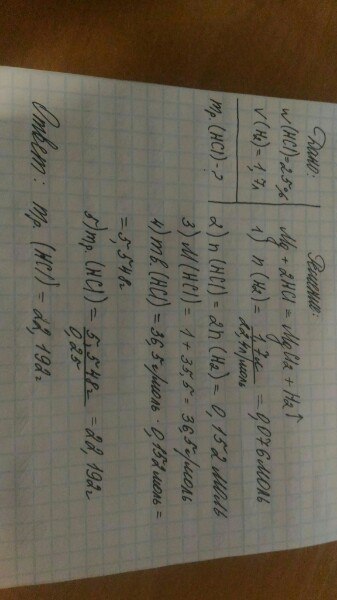 Дано:
w(HCl)=25%
V(H₂)=1,7л
mр(HCl)-?
Решение:
Mg + 2HCl = MgCl₂ + H₂↑
1) n(H₂) = 1,7л / 22,4л/моль = 0,076моль
2) n(HCl) = 2n(H₂) = 0,152 моль
3) M(HCl) = 1 + 35,5 = 36,5г/моль
4) mв(HCl) = 36,5г/моль · 0,152моль =
= 5,548г
5) mр(HCl) = 5,548г / 0,25 = 22,192г
Ответ: mр(HCl) = 22,192г